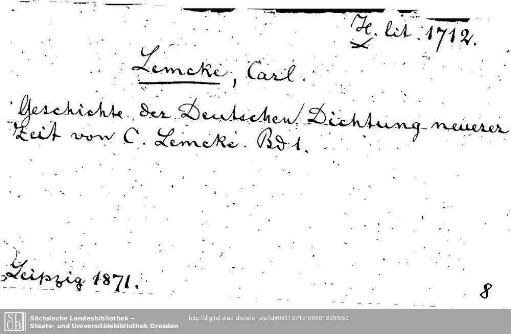 H. lit. 1712.
Lemcke, Carl.
Geschichte der Deutschen Dichtung neuerer
Zeit von C. Lemcke. Bd 1.
Leipzig 1871.
8
SLUB
Sächsische Landesbibliothek –
Staats- und Universitätsbibliothek Dresden